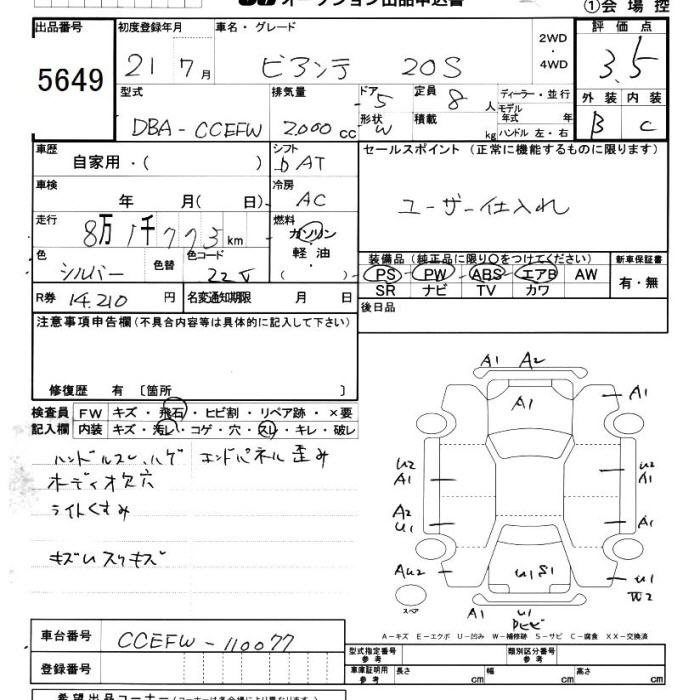 オークション出品申込書
①会場控
出品番号 初度登録年月 車名・グレード 評価点
5649 21 7月 ビアンテ 20S 2WD・4WD 3.5
型式 排気量 ドア 5 定員 8人 ディーラー・並行 モデル 外装 内装
DBA-CCEFW 2000cc 形状 W 積載 kg 年式 年 ハンドル 左・右 B C
車歴 シフト セールスポイント(正常に機能するものに限ります)
自家用・( ) AT
車検 冷房
年 月(日) AC ユーザー仕入れ
走行 燃料
8万1千773km ガソリン・軽油・( )
色 色替 色コード 装備品(純正品に限り〇をつけてください) 新車保証書
シルバー 22V PS PW ABS エアB AW 有・無
SR ナビ TV カワ
R券 14.210円 名変通知期限 月 日 後日品
注意事項申告欄(不具合内容等は具体的に記入して下さい)
修復歴 有 〔箇所 〕
検査員 FW キズ・飛石・ヒビ割・リペア跡・×要
記入欄 内装 キズ・汚レ・コゲ・穴・スレ・キレ・破レ
ハンドルスレ、ハゲ エンドパネル歪み
オーディオ欠穴
ライトくすみ
キズUスリキズ
A1 A2
A1 A1
U2 A1 U2 A1
A2 U1 A1
AU2 U1 S1 U1 W2
スペア A1 U1
A-キズ E-エクボ U-凹み W-補修跡 S-サビ C-腐食 XX-交換済
車台番号 CCEFW-110077
登録番号
型式指定番号 参考 類別区分番号 参考
車庫証明用 参考 長さ cm 幅 cm 高さ cm
希望出品コーナー